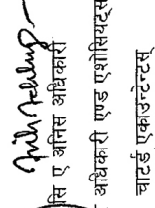 सि ए अनिस अधिकारी
अधिकारी एण्ड एशोसियट्स
चार्टर्ड एकाउन्टेन्टस्